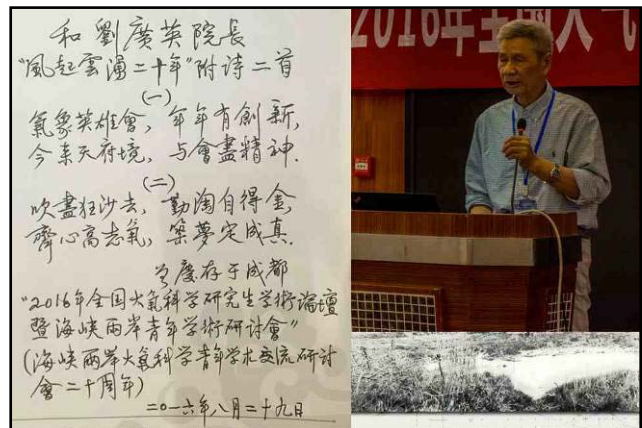 和劉廣英院長
“風起雲湧二十年”附诗二首
(一)
氣象英雄會，年年有創新，
今来天府境，与會盡精神.
(二)
吹盡狂沙去，勤淘自得金，
齊心高志氣，築夢定成真.
曾慶存于成都
“2016年全国大氣科学研究生学術論壇
暨海峡兩岸青年学術研討會”
(海峡兩岸大氣科学青年学术交流研討
會二十周年)
二〇一六年八月二十九日
2016年全国大气